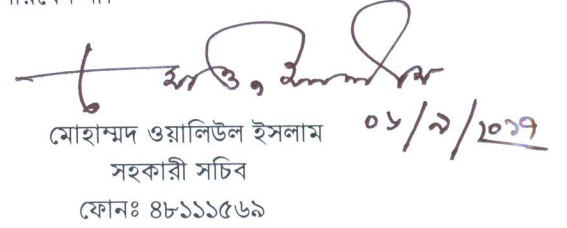 ০৬/৯/২০১৭
মোহাম্মদ ওয়ালিউল ইসলাম
সহকারী সচিব
ফোনঃ ৪৮১১১৫৬৯